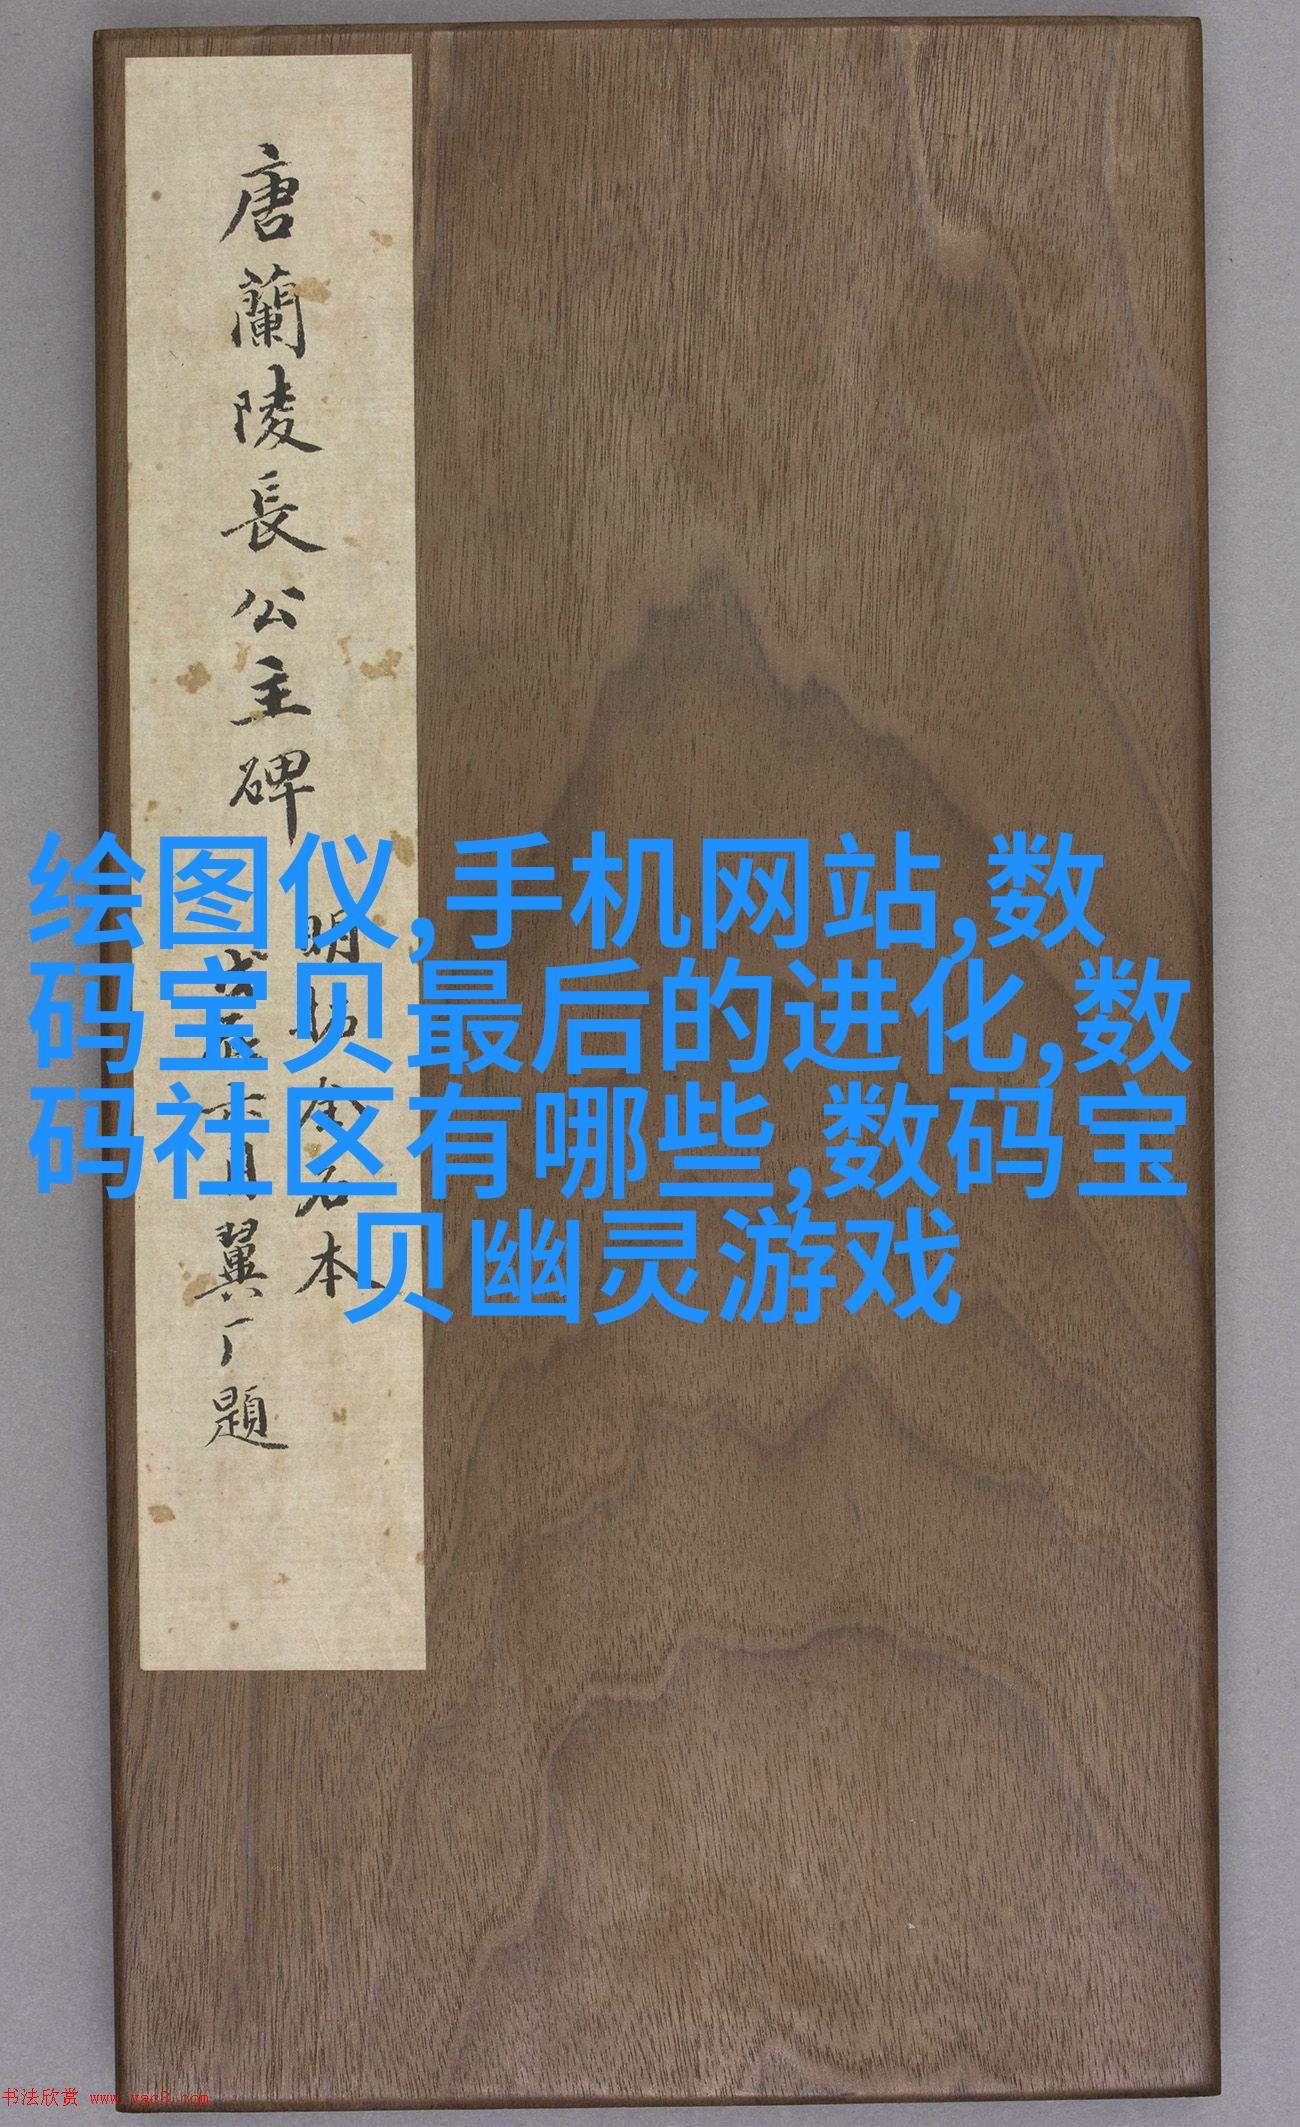 唐蘭陵長公主碑
明拓金石本
戊辰十月翼厂題
绘图仪,手机网站,数
码宝贝最后的进化,数
码社区有哪些,数码宝
贝幽灵游戏
书法欣赏 www.yac8.com